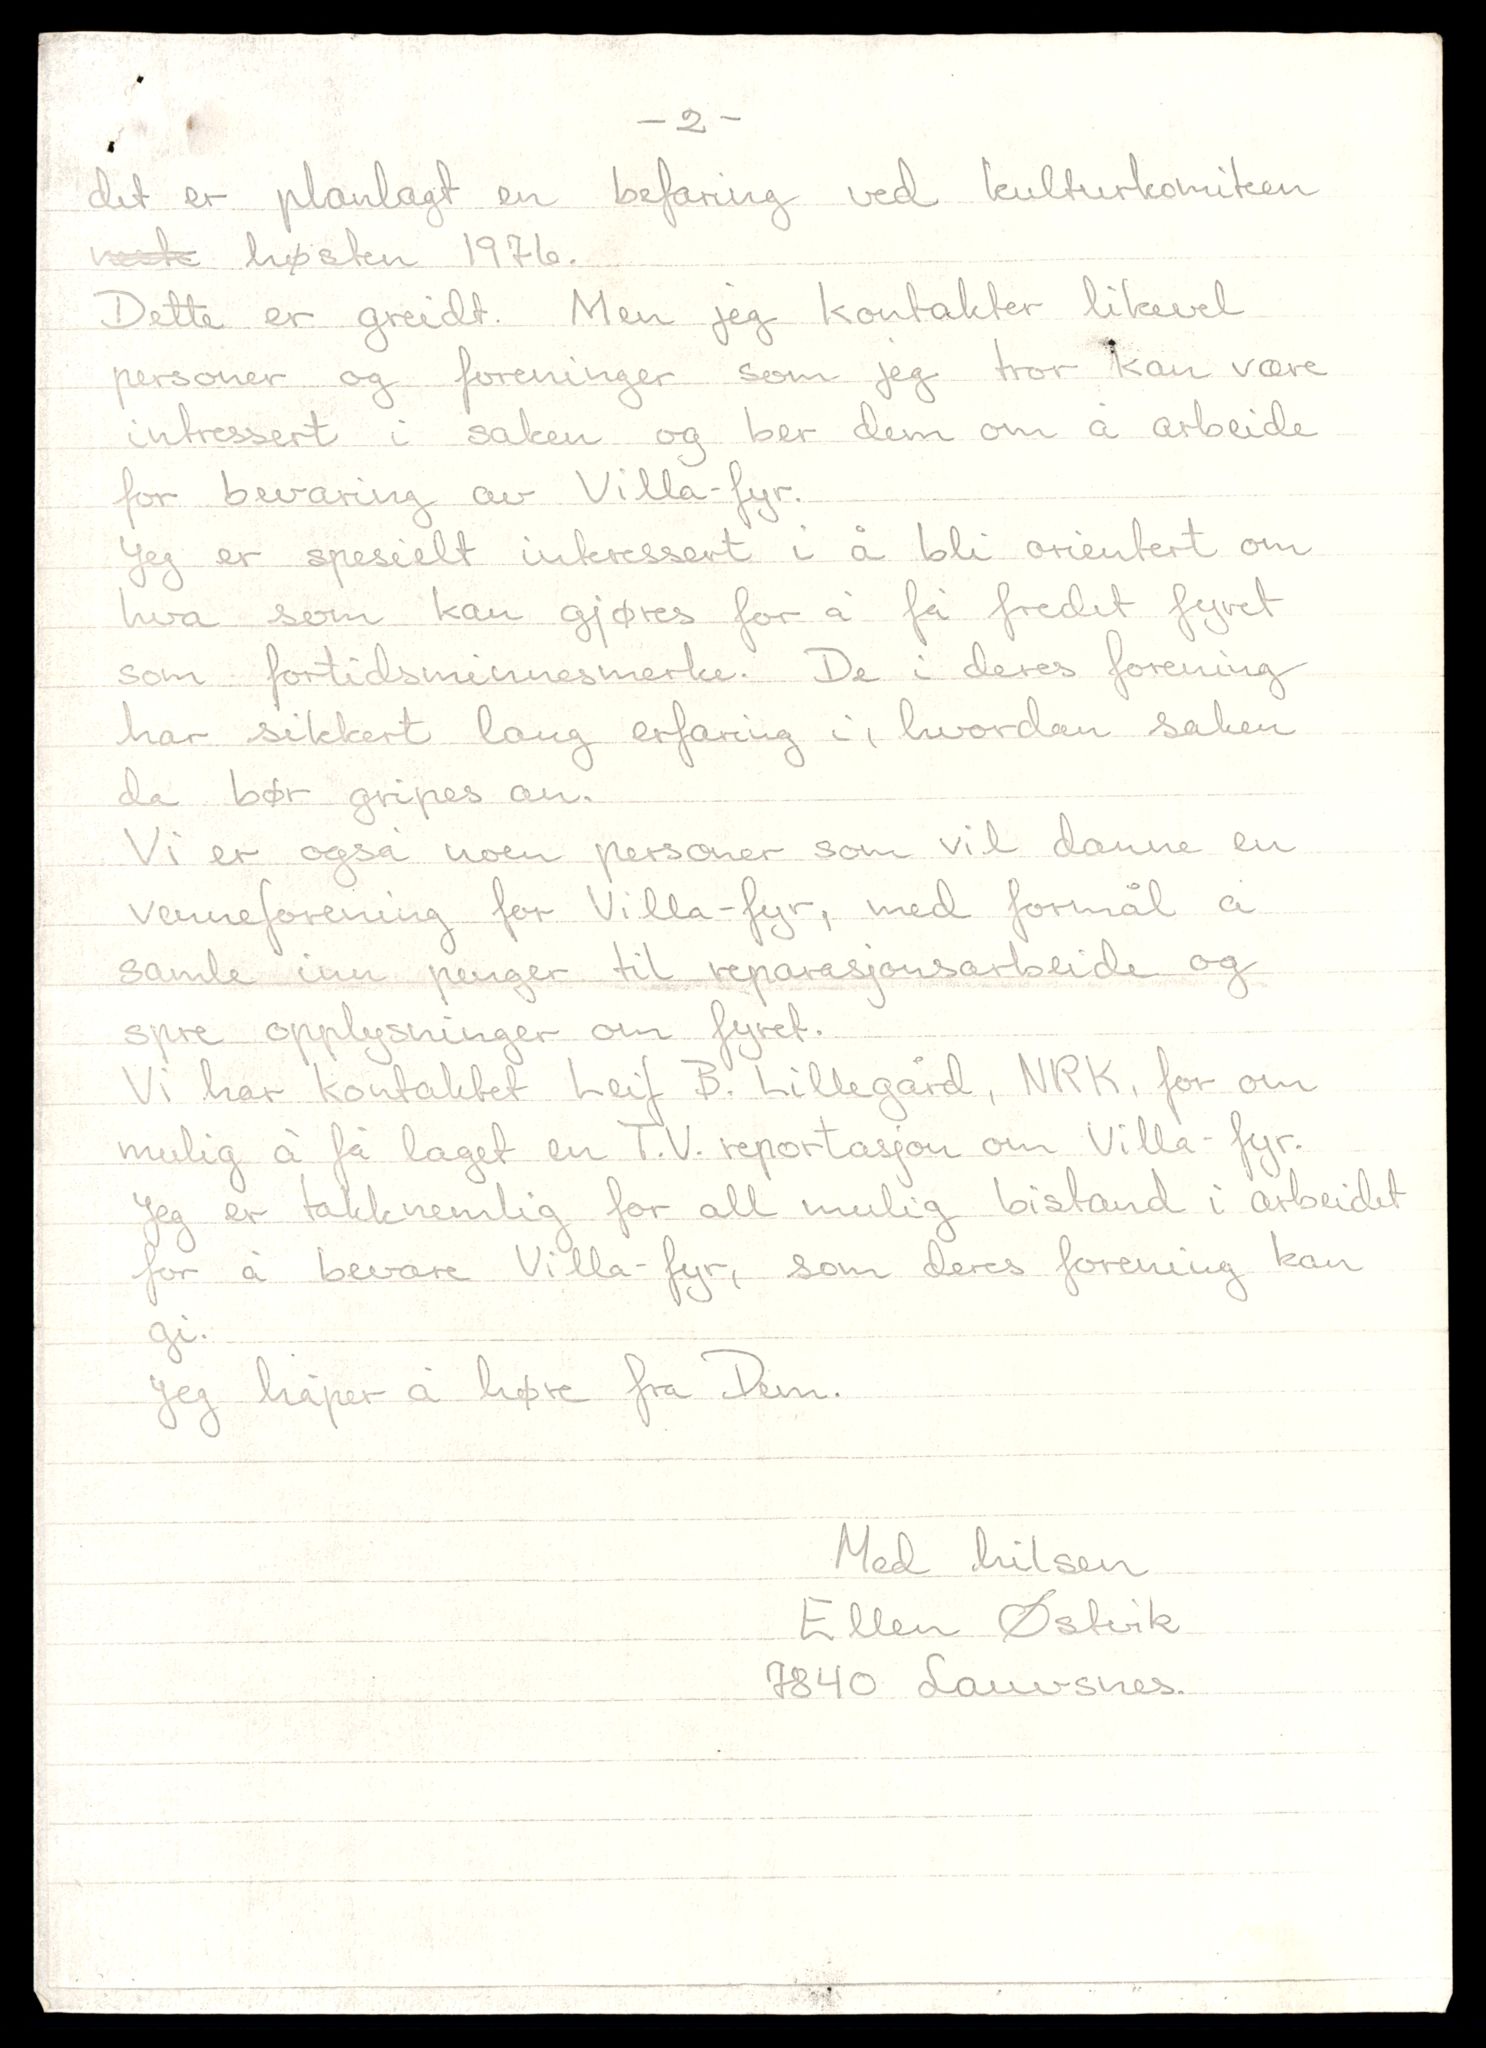 - 2 -
det er planlagt en befaring ved kulturkomiteen
neste høsten 1976.
Dette er greidt. Men jeg kontakter likevel
personer og foreninger som jeg tror kan være
intressert i saken og ber dem om å arbeide
for bevaring av Villa-fyr.
Jeg er spesielt interessert i å bli orientert om
hva som kan gjøres for å få fredet fyret
som fortidsminnesmerke. De i deres forening
har sikkert lang erfaring i, hvordan saken
da bør gripes an.
Vi er også noen personer som vil danne en
venneforening for Villa-fyr, med formål å
samle inn penger til reparasjonsarbeide og
spre opplysninger om fyret.
Vi har kontaktet Leif B. Lillegård, NRK, for om
mulig å få laget en T.V. reportasjon om Villa-fyr.
Jeg er takknemlig for all mulig bistand i arbeidet
for å bevare Villa-fyr, som deres forening kan
gi.
Jeg håper å høre fra Dem.
Med hilsen
Ellen Østvik
7840 Lauvsnes.